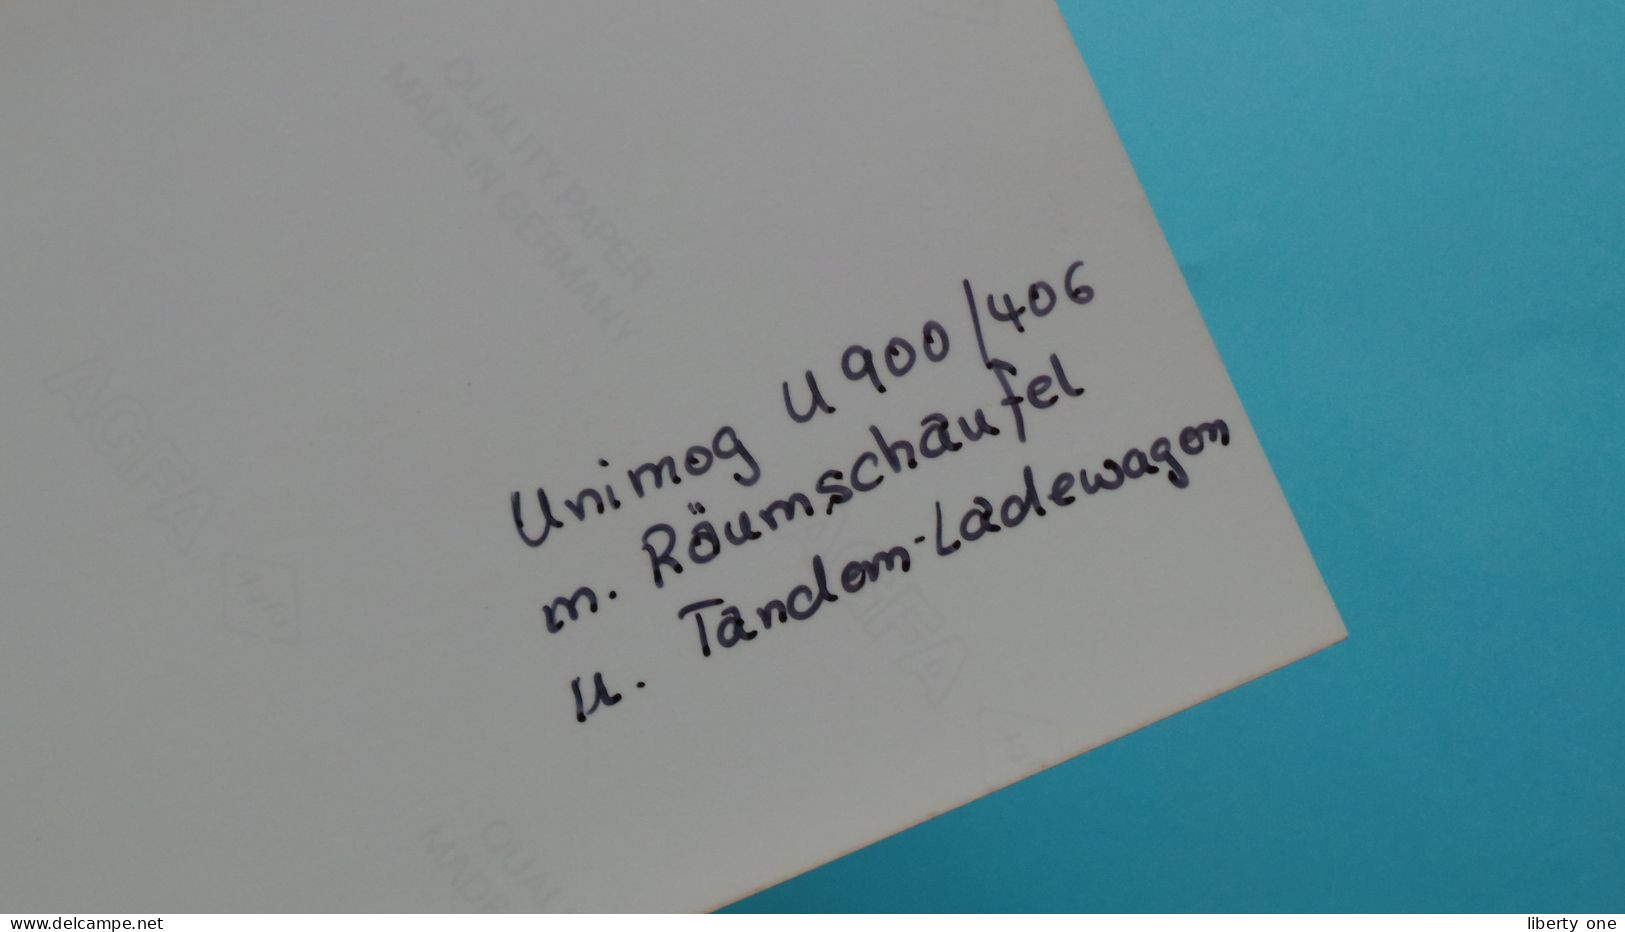 QUALITY PAPER
MADE IN GERMANY
AGFA
Agfa
Unimog U 900/406
m. Räumschaufel
u. Tandem-Ladewagen
AGFA
QUAL
MADE
www.delcampe.net
liberty_one